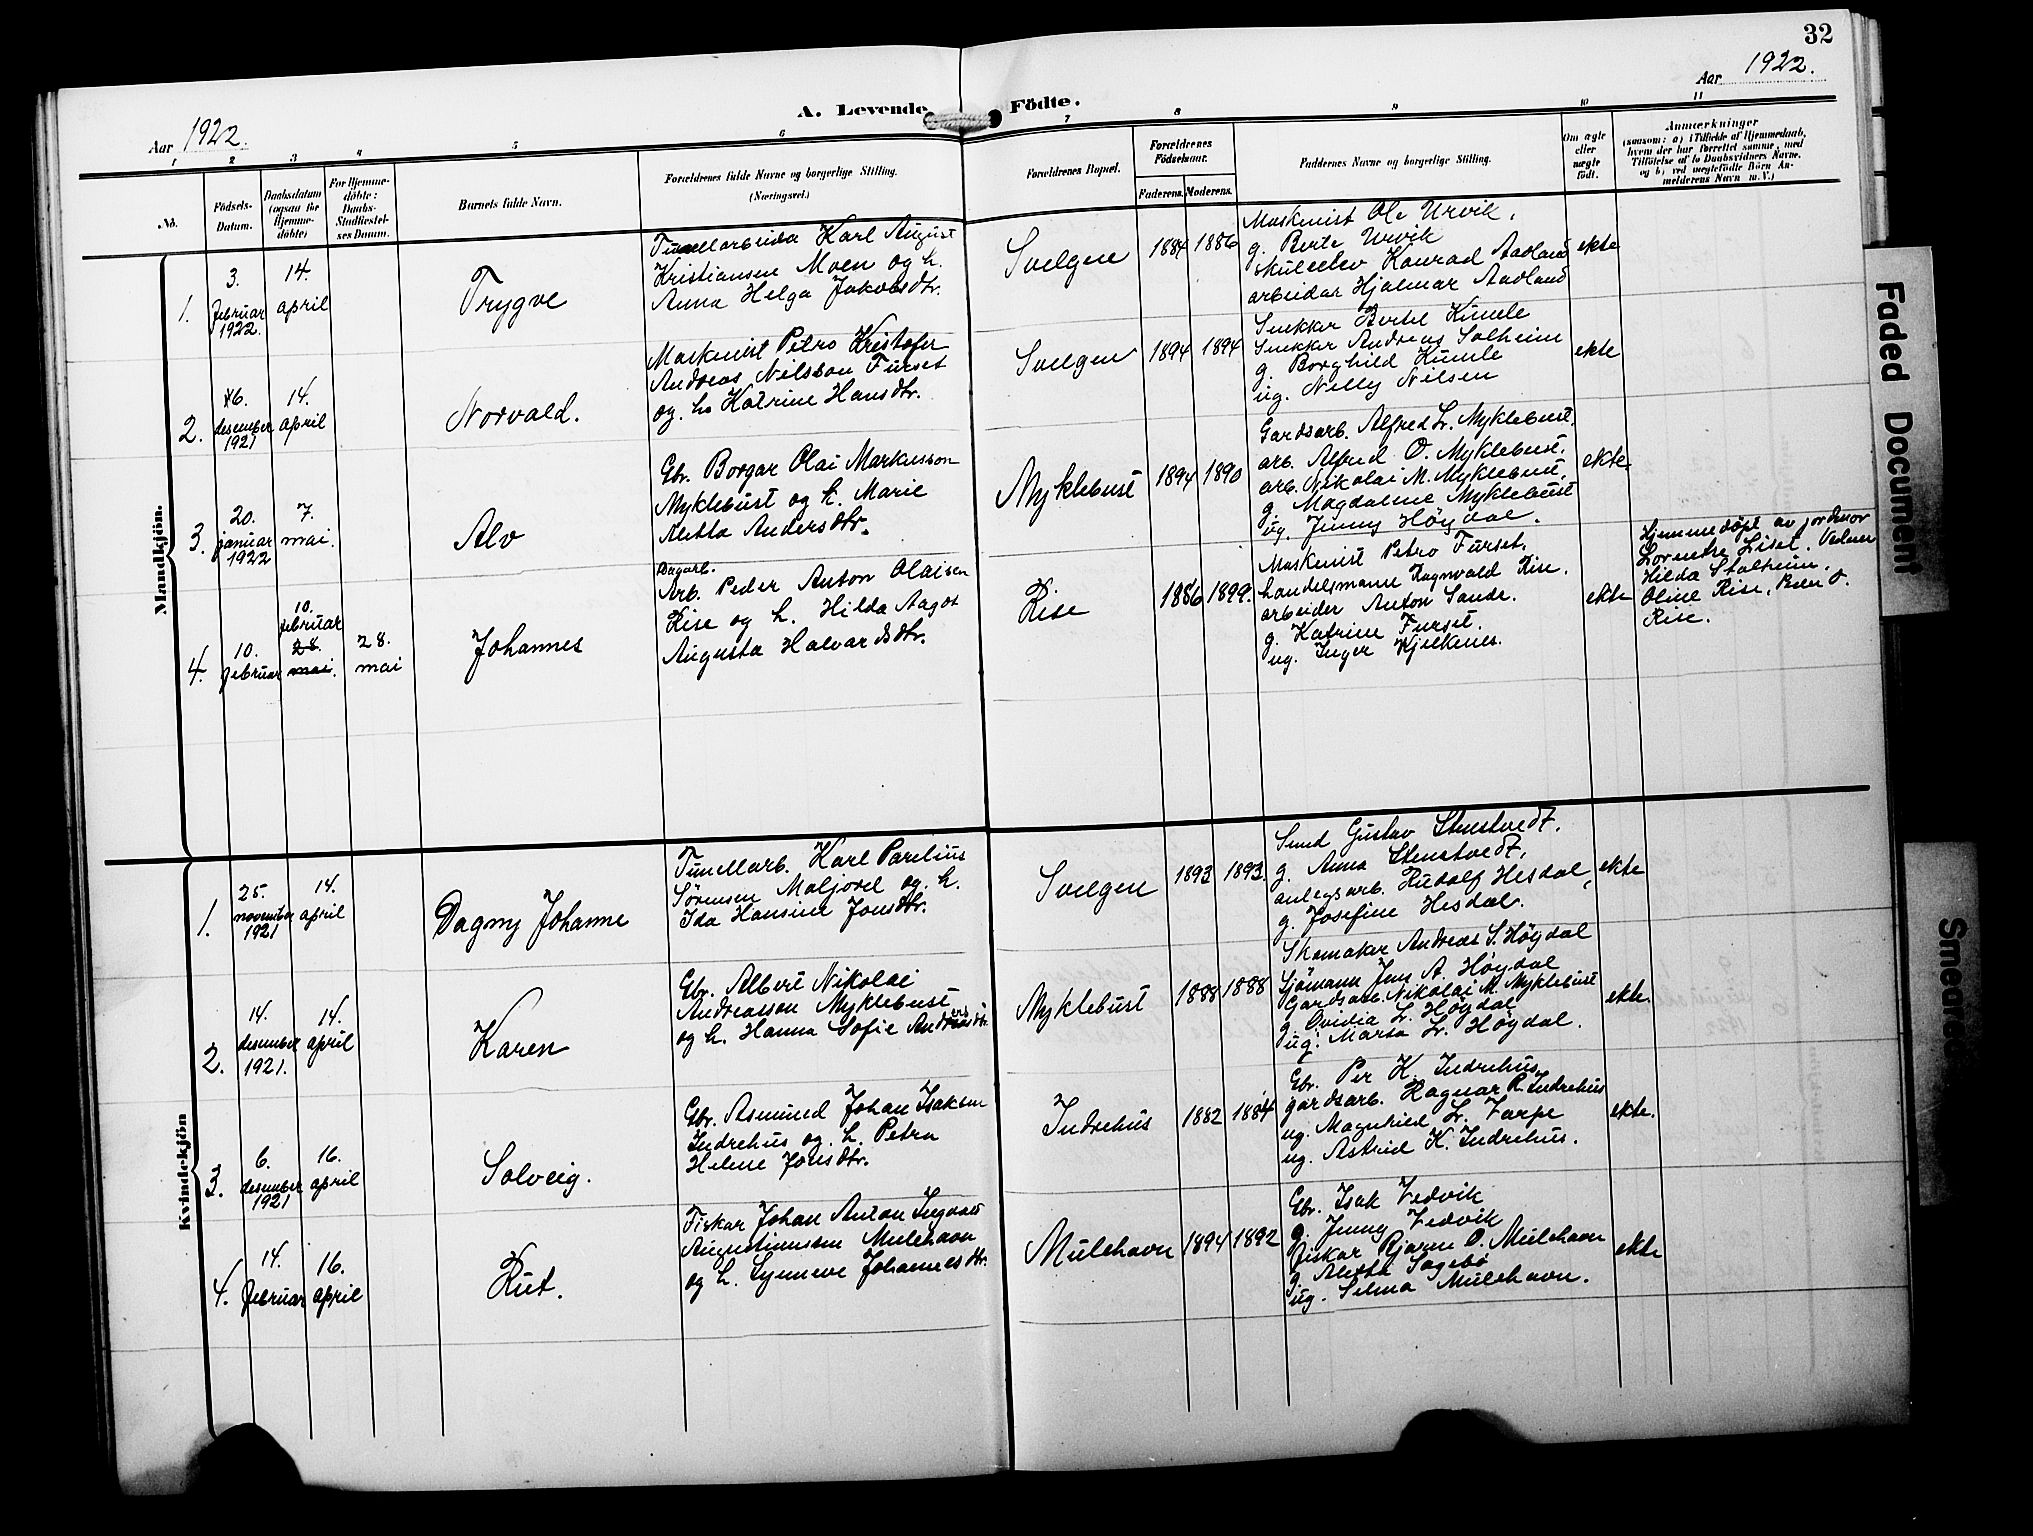 32
Aar 1922.
A. Levende Födte.
Aar 1922.
1 2 3 4 5 6 7 8 9 10 11
No.
Födsels-Datum.
Daabsdatum (ogsaa for Hjemme-døbte)
For Hjemme-døbte: Daabs-Stadfæstel-ses Datum.
Barnets fulde Navn.
Forældrenes fulde Navne og borgerlige Stilling.
(Næringsvei.)
Forældrenes Bopæl.
Forældrenes Födselsaar.
Faderens. Moderens.
Faddernes Navne og borgerlige Stilling.
Om ægte eller uægte født.
Anmærkninger
(saasom: a) i Tilfælde af Hjemmedaab,
hvem der har forrettet samme, med
Tilföielse af to Daabsvidners Navne,
og b) ved uægtefödte Börn An-
melderens Navn m. V.)
Mandkjön.
1.
3. februar 1922.
14. april
Trygve
Tunellarbeider Karl August
Kristiansen Moen og h.
Anna Helga Jakobsdtr.
Svelgen
1884 1886
Maskinist Ole Urvik,
g. Berte Urvik
Konrad Aadland
arbeidar Hjalmar Aadland
ekte
2.
16. desember 1921
14. april
Norvald.
Maskinist Petro Kristofer
Andreas Nilsson Furset
og h. Katrine Hansdtr.
Svelgen
1894 1894
Snekker Bertel Kumle
Snekker Andreas Solheim
g. Borghild Kumle
ug. Nelly Nilsen
ekte
3.
20. januar 1922
7. mai.
Alv
Gbr. Borgar Olai Markusson
Myklebust og h. Marie
Aletta Andersdtr.
Myklebust
1894 1890
Gardsarb. Alfred L. Myklebust,
arb. Alfred O. Myklebust.
arb. Nikolai M. Myklebust,
g. Magdalene Myklebust
ug. Jenny Høydal.
ekte
4.
10. februar
10. februar
28. mai.
28. mai
Johannes
Dagarb.
Arb. Peder Anton Olaisen
Rise og h. Hilda Aagot
Augusta Halvardsdtr.
Rise
1886 1899.
Maskinist Petro Furset.
handelsmann Ragnvald Rise.
arbeider Anton Sande.
g. Katrine Furset.
ug. Inger Kjelkenes.
ekte
Hjemmedøpt av jordmor
Lorentse Liset. Vidner
Hilda Stalheim.
Oline Rise, Peder O.
Rise.
Kvindekjön
1.
25. november 1921
14. april
Dagny Johanne
Tunellarb. Karl Parelius
Sørensen Maljord og h.
Ida Hansine Jonsdtr.
Svelgen
1893 1893.
Smed Gustav Stenstvedt,
g. Anna Stenstvedt,
anlegsarb. Rudolf Hesdal,
g. Josefine Hesdal.
ekte
2.
14. desember 1921.
14. april
Karen
Gbr. Albert Nikolai
Andreassen Myklebust
og h. Hanna Sofie Andersdtr.
Myklebust
1888 1888
Skomaker Andreas S. Høydal
Sjømann Jens A. Høydal
Gardsarb. Nikolai M. Myklebust
g. Ovidia L. Høydal
ug. Marta L. Høydal.
ekte.
3.
6. desember 1921
16. april
Solveig.
Gbr. Asmund Johan Isaksen
Indrehus og h. Petra
Helene Jonsdtr.
Indrehus
1882 1884
Gbr. Per K. Indrehus,
gardsarb. Ragnar R. Indrehus
ug. Magnhild L. Varpe
ug. Astrid K. Indrehus.
ekte.
4.
14. februar
16. april
Rut.
Fiskar Johan Anton Ingvald
Augustinussen Mulehavn
og h. Synneve Johannesdtr.
Mulehavn
1894 1892
Gbr. Isak Vedvik
g. Jenny Vedvik
fiskar Bjarne O. Mulehavn
g. Aletta Sagebø
ug. Selma Mulehavn.
ekte
Faded Document
Smeared